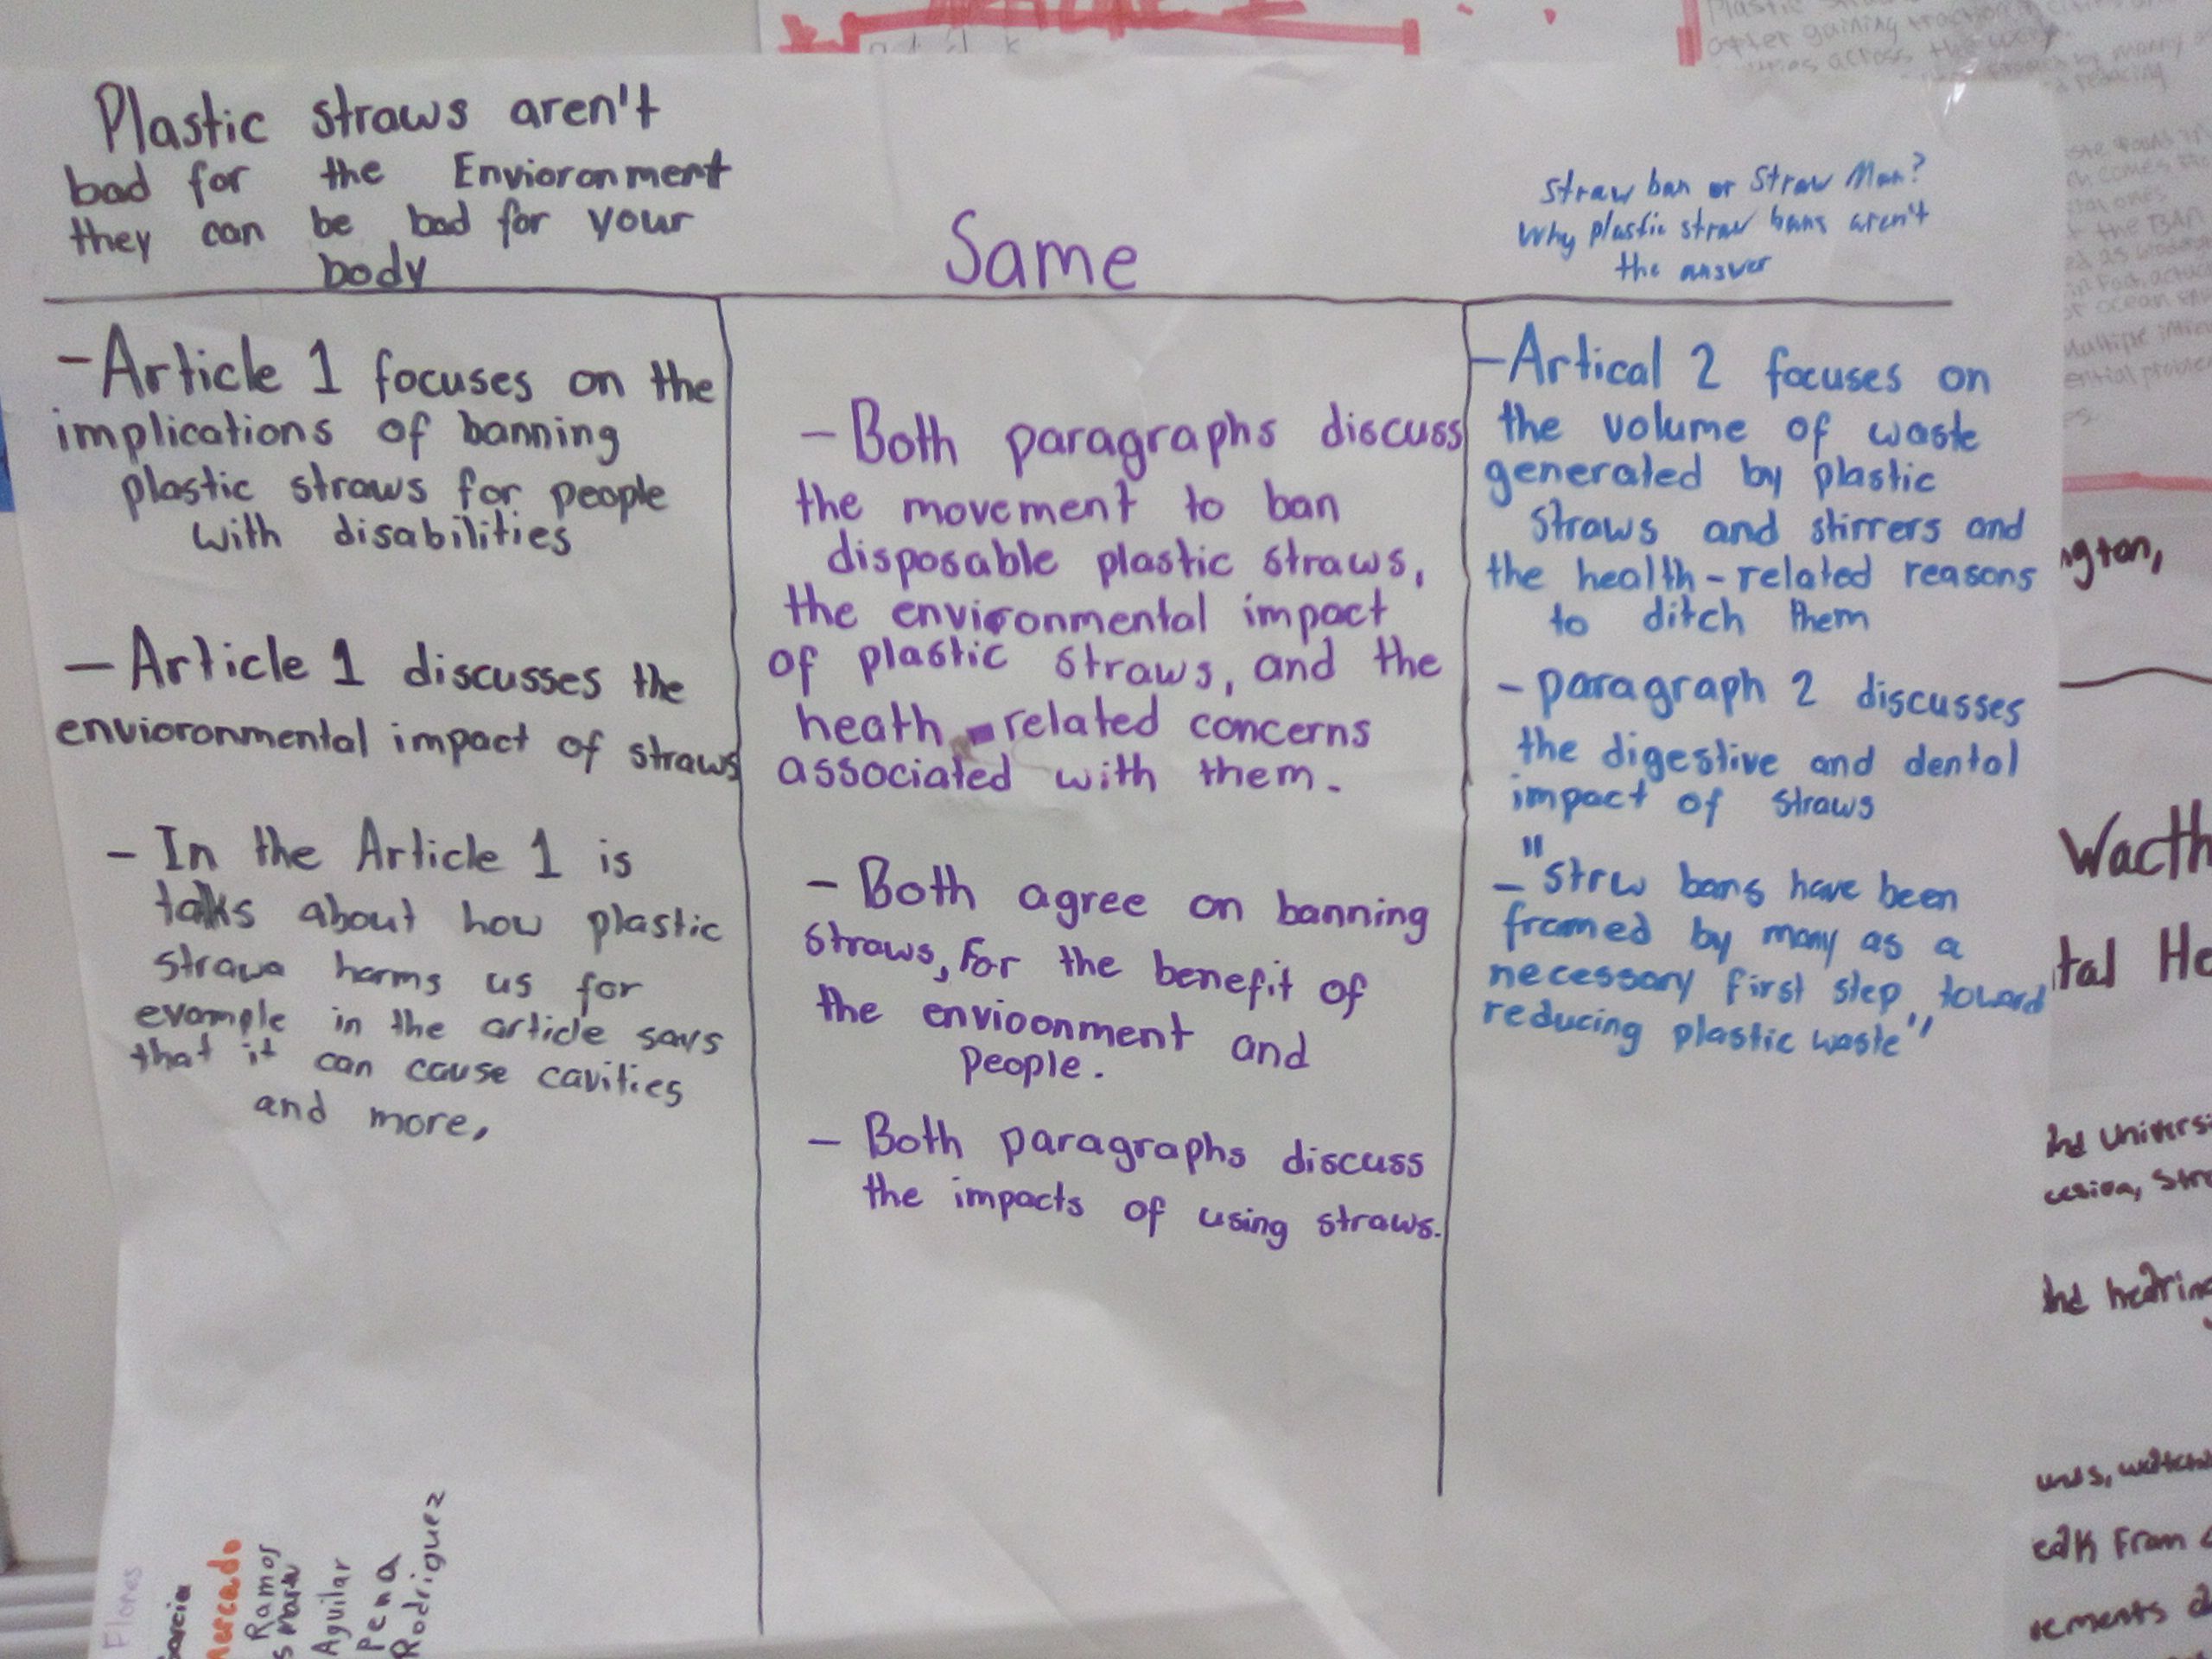 Plastic straws aren't
bad for the Envioronment
they can be bad for your
body
- Article 1 focuses on the
implications of banning
plastic straws for people
with disabilities
- Article 1 discusses the
envioronmental impact of straws
- In the Article 1 is
talks about how plastic
strawa harms us for
evample in the article says
that it can cause cavities
and more,
Same
- Both paragraphs discuss
the movement to ban
disposable plastic straws,
the environmental impact
of plastic straws, and the
heath-related concerns
associated with them.
- Both agree on banning
straws, For the benefit of
the envioonment and
People.
- Both paragraphs discuss
the impacts of using straws.
Straw ban or Straw Man?
Why plastic straw bans aren't
the answer
- Artical 2 focuses on
the volume of waste
generated by plastic
straws and stirrers and
the health-related reasons
to ditch them
- paragraph 2 discusses
the digestive and dental
impact of straws
- "strw bans have been
framed by many as a
necessary first step, toward
reducing plastic waste"
Flores
Garcia
Mercado
Ramos
Aguilar
Pena
Rodriguez
Plastic
after gaining traction
across the
ngton,
Wacth
tal He
and universi
and hearing
ealk From
rements